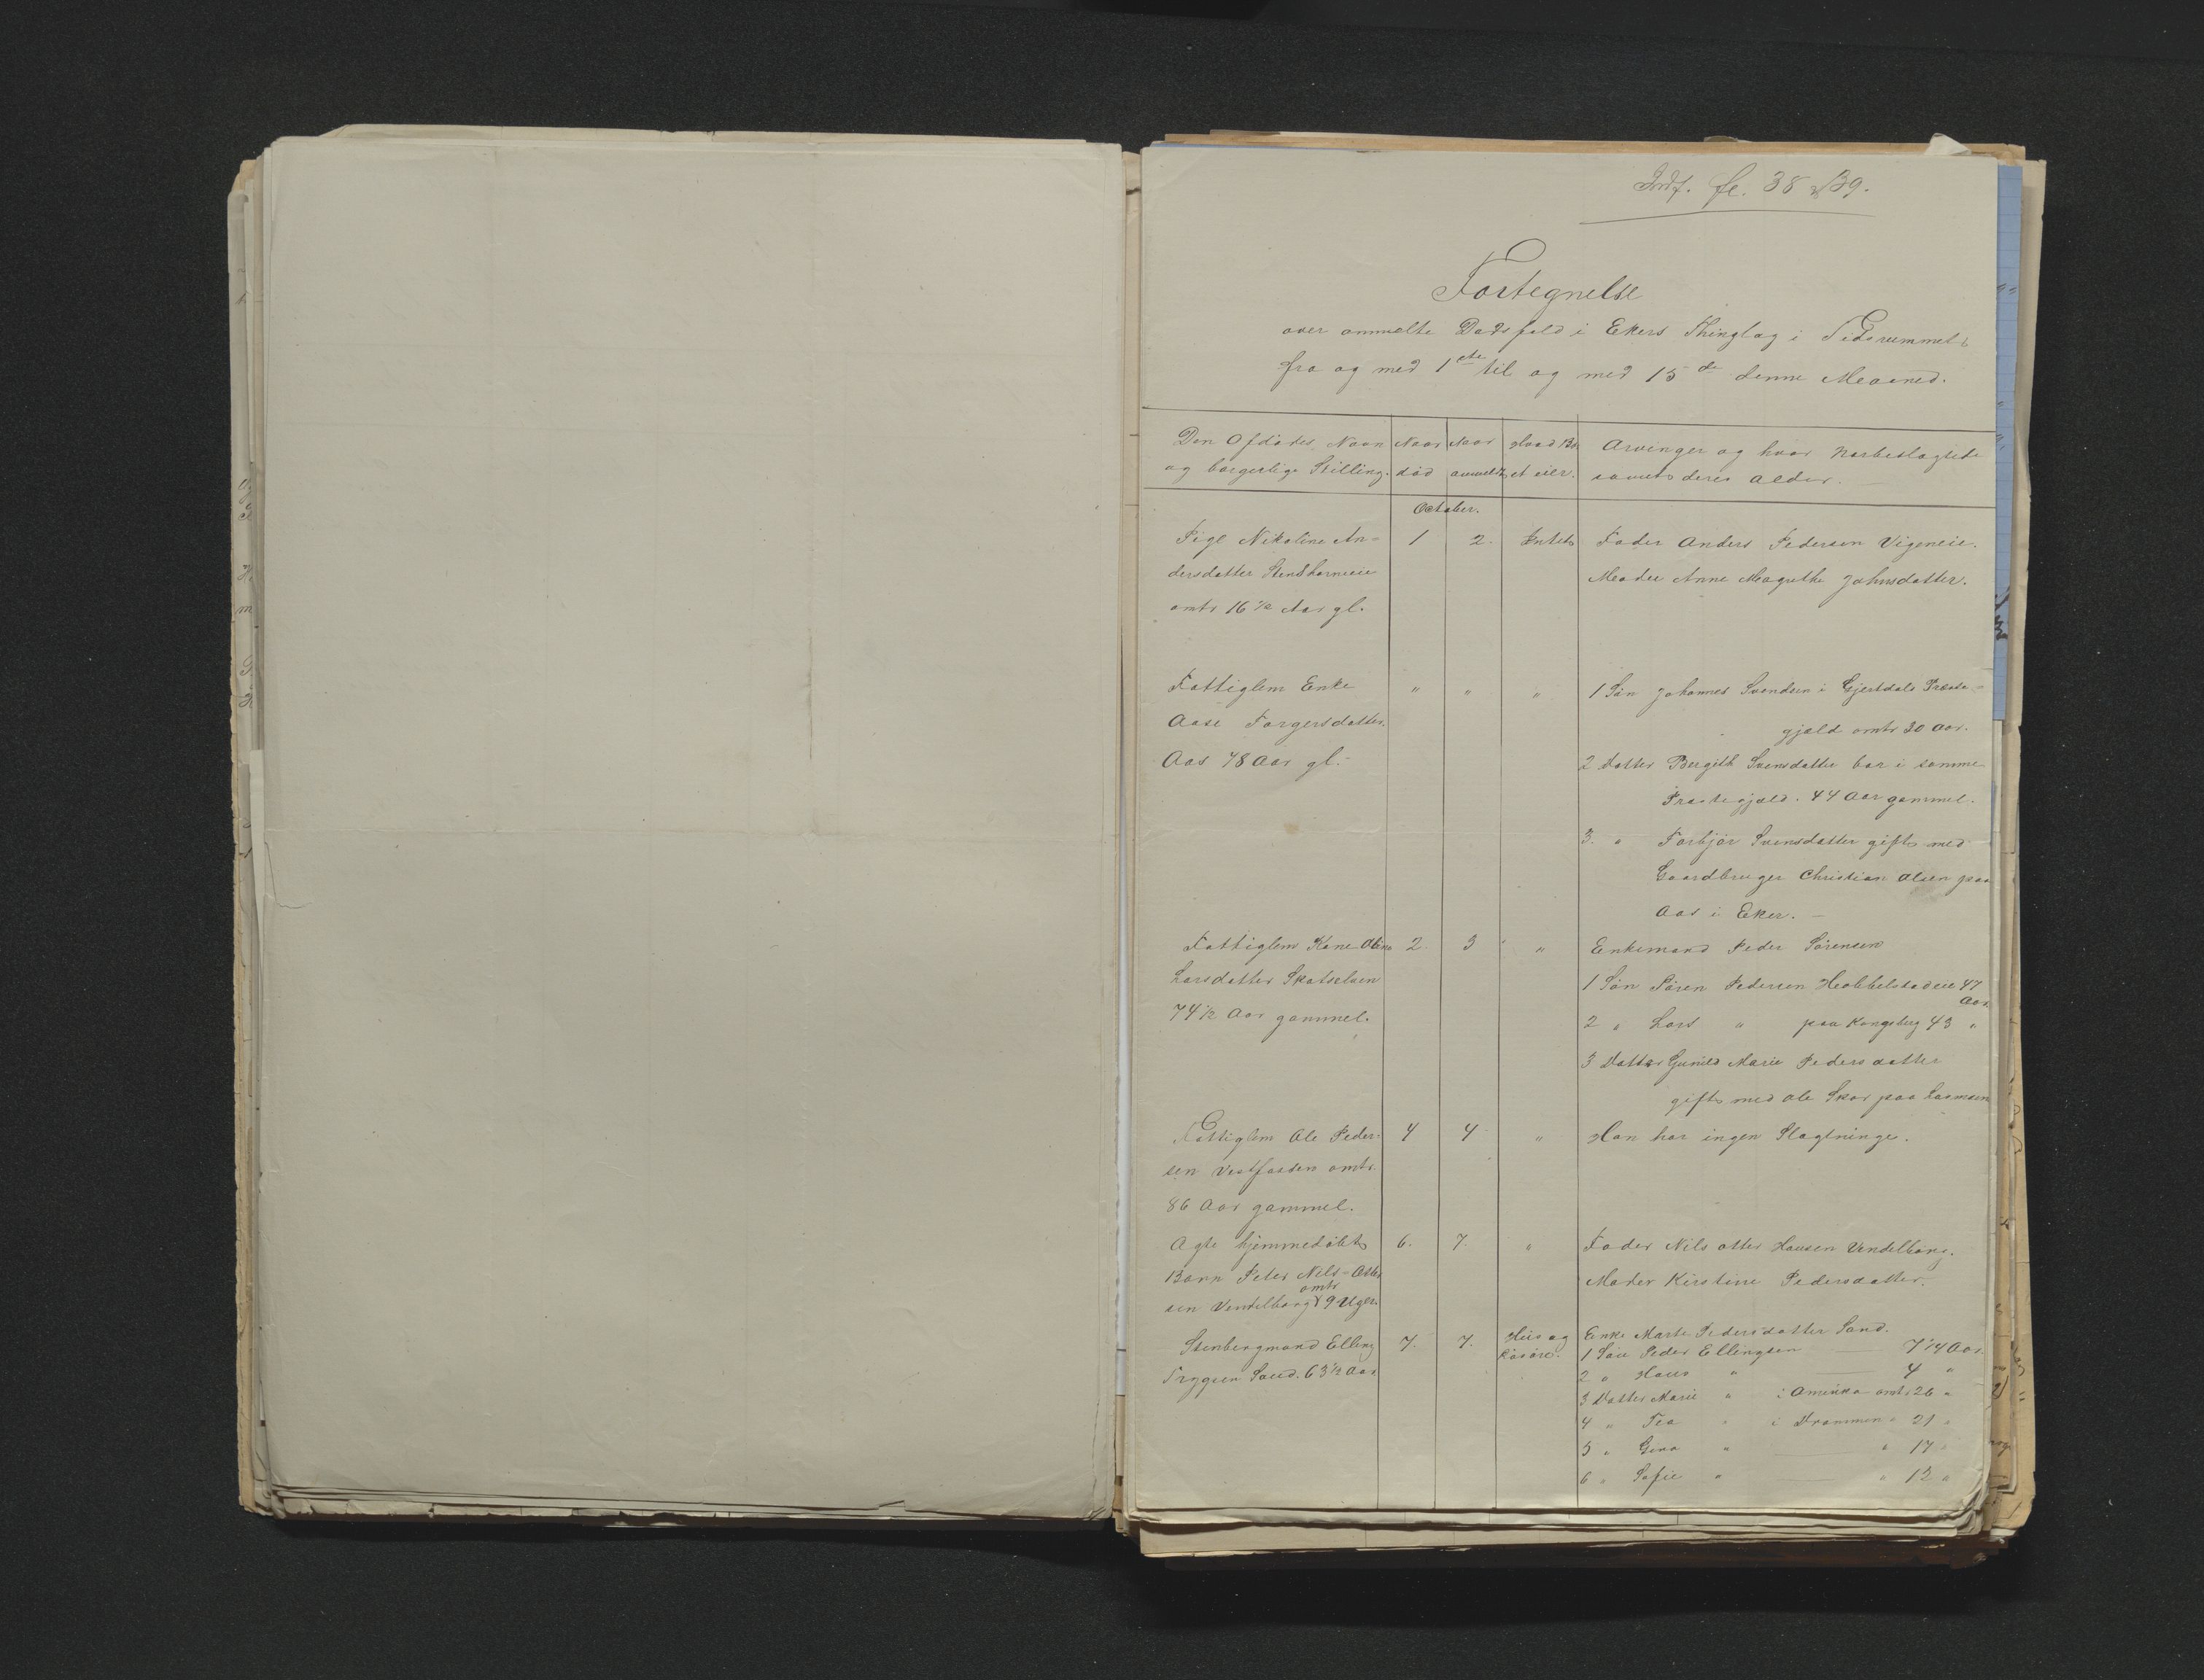 Indf. fl. 38 & 39.
Fortegnelse
over anmelte Dødsfald i Ekers Thinglag i Tidsrummet
fra og med 1ste til og med 15de denne Maaned.
Den Afdødes Navn Naar Naar Hvad Bo- Arvinger og hvor nærbeslægtede
og borgerlige Stilling. død anmeldt et eier. samt deres Alder.
October.
Pige Nikoline An- 1 2. Intet Fader Anders Pedersen Vigeneie.
dersdatter Moder Anne Magrethe Johnsdatter.
omtr 16 1/2 Aar gl.
Fattiglem Enke " " " 1 Søn Johannes Svendsen i Gjerdals Præste-
Aase Torgersdatter gjæld omtr 30 Aar.
Aas 78 Aar gl. 2 Datter Bergith Svensdatter bor i samme
Præstegjæld. 44 Aar gammel.
3. " Torbjør Svensdatter gift med
Gaardbruger Christian Olsen paa
Aas i Eker.
Fattiglem Kone 2. 3 " Enkemand Peder Sørensen
Larsdatter Skotselven 1 Søn Søren Pedersen Hobbelstadeie 47
Aar
74 1/2 Aar gammel. 2 " Lars " paa Kongsberg 43 "
3 Datter Gunild Marie Pedersdatter
gift med Ole Skar paa
Fattiglem Ole Peder- 4 4 " Han har ingen Slægtninge.
sen Vestfossen omtr.
86 Aar gammel.
Ægte hjemmedøbt 6. 7. " Fader Nils Otter Hansen Vendelborg.
Barn Peter Nils-Otter Moder Kirstine Pedersdatter.
omtr
sen Vendelborg 9 Uger.
Stenbergmand Elling 7. 7. Hus og Enke Marte Pedersdatter Sand.
Løsøre. 1 Søn Peder Ellingsen 7 1/4 Aar.
Trygsen Sand. 63 1/2 Aar 2 " Hans " 4 "
3 Datter Marie " i Amerika omtr 26 "
4 " Tea " i Drammen " 21 "
5 " Gina " " 17 "
6 " Sofie " " 12 "